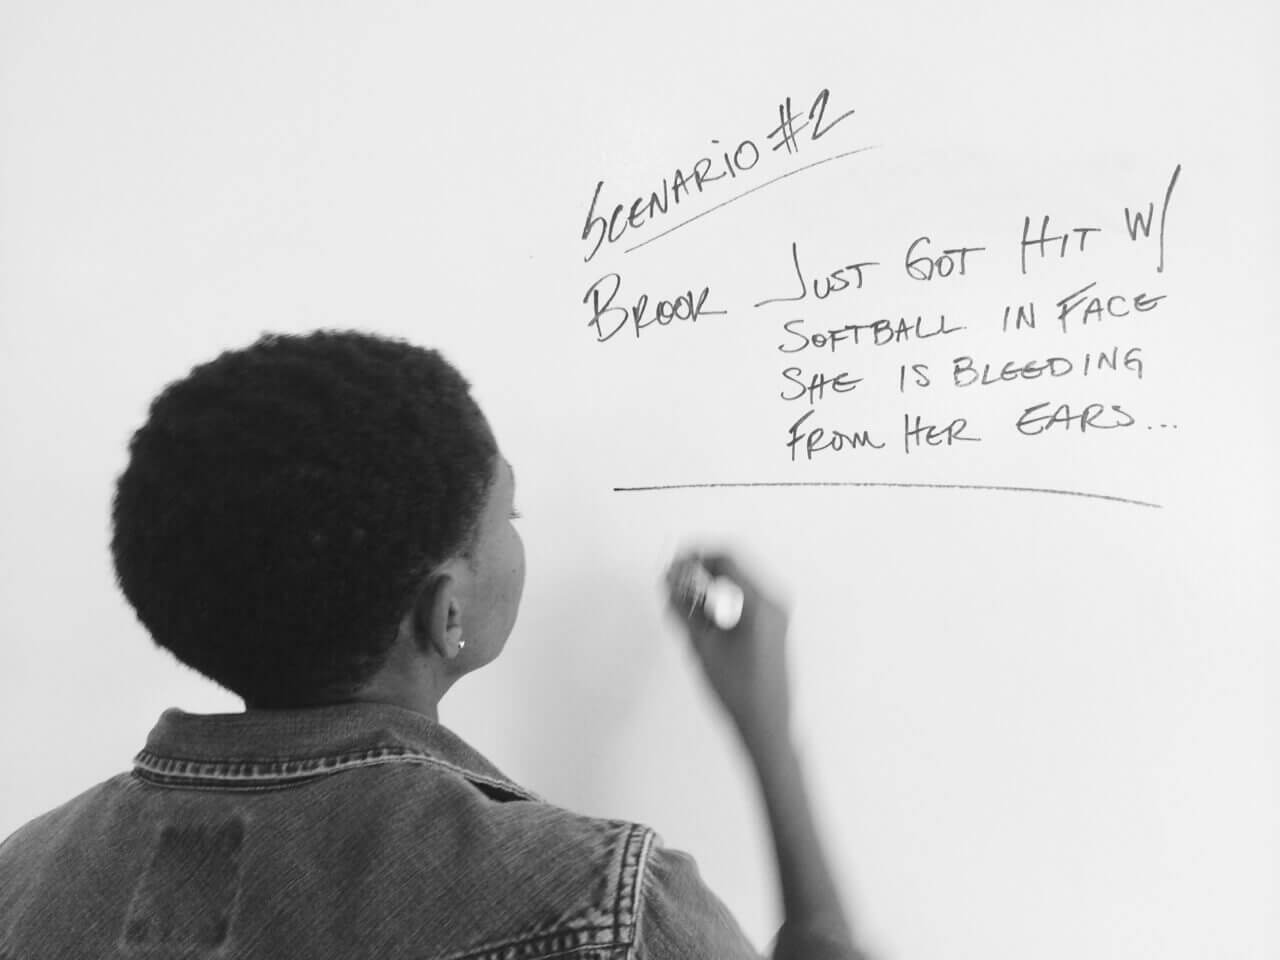 SCENARIO #2
BROOK JUST GOT HIT W/
SOFTBALL IN FACE
SHE IS BLEEDING
FROM HER EARS...